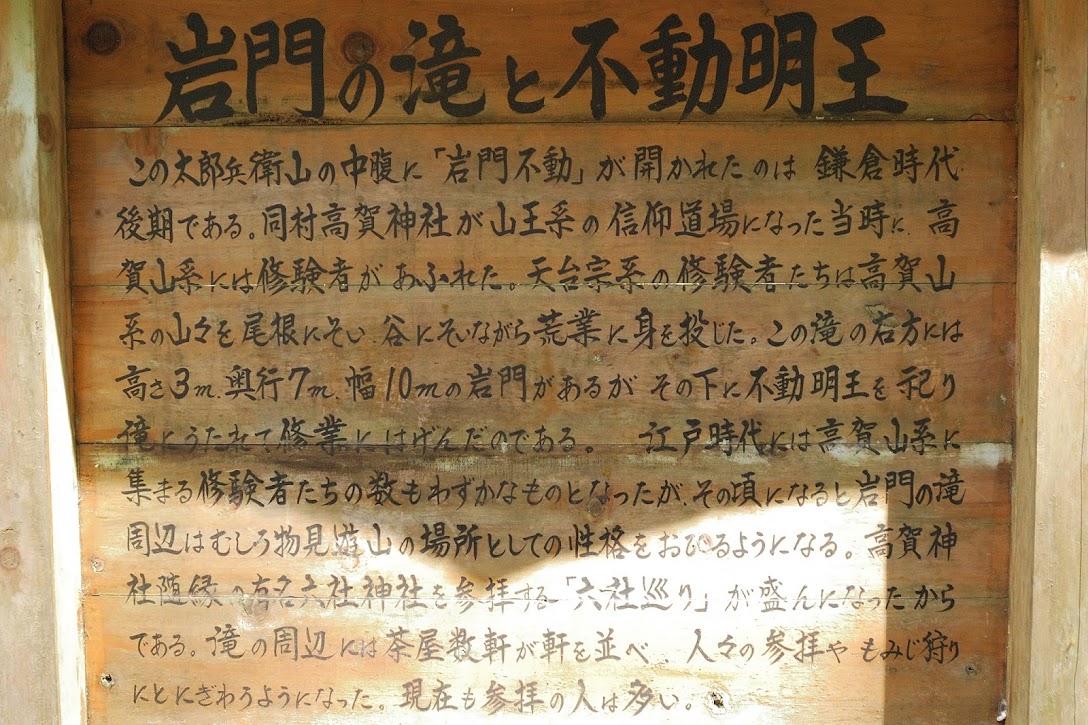 岩門の滝と不動明王
この太郎兵衛山の中腹に「岩門不動」が開かれたのは 鎌倉時代
後期である。同村高賀神社が山王系の信仰道場になった当時に、高
賀山系には修験者があふれた。天台宗系の修験者たちは高賀山
系の山々を尾根にそい、谷にそいながら荒業に身を投じた。この滝の右方には
高さ3m、奥行7m、幅10mの岩門があるが その下に不動明王を祀り
滝にうたれて修業にはげんだのである。 江戸時代には高賀山系に
集まる修験者たちの数もわずかなものとなったが、その頃になると岩門の滝
周辺はむしろ物見遊山の場所としての性格をおびるようになる。高賀神
社随縁の有名六社神社を参拝する「六社巡り」が盛んになったから
である。滝の周辺には茶屋数軒が軒を並べ、人々の参拝やもみじ狩り
にとにぎわうようになった。現在も参拝の人は多い。